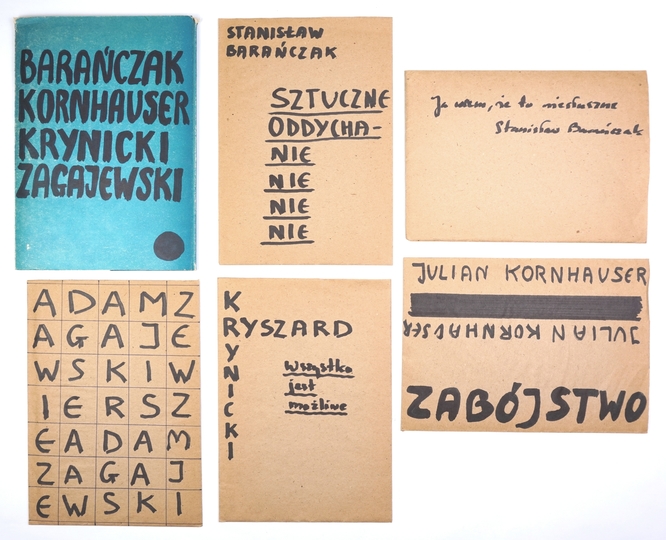 BARAŃCZAK
KORNHAUSER
KRYNICKI
ZAGAJEWSKI
STANISŁAW
BARAŃCZAK
SZTUCZNE
ODDYCHA-
NIE
NIE
NIE
NIE
Ja wiem, że to niesłuszne
Stanisław Barańczak
ADAMZ
AGAJE
WSKIW
IERSZ
EADAM
ZAGAJ
EWSKI
KRYNICKI
RYSZARD
wszystko
jest
możliwe
JULIAN KORNHAUSER
JULIAN KORNHAUSER
ZABÓJSTWO